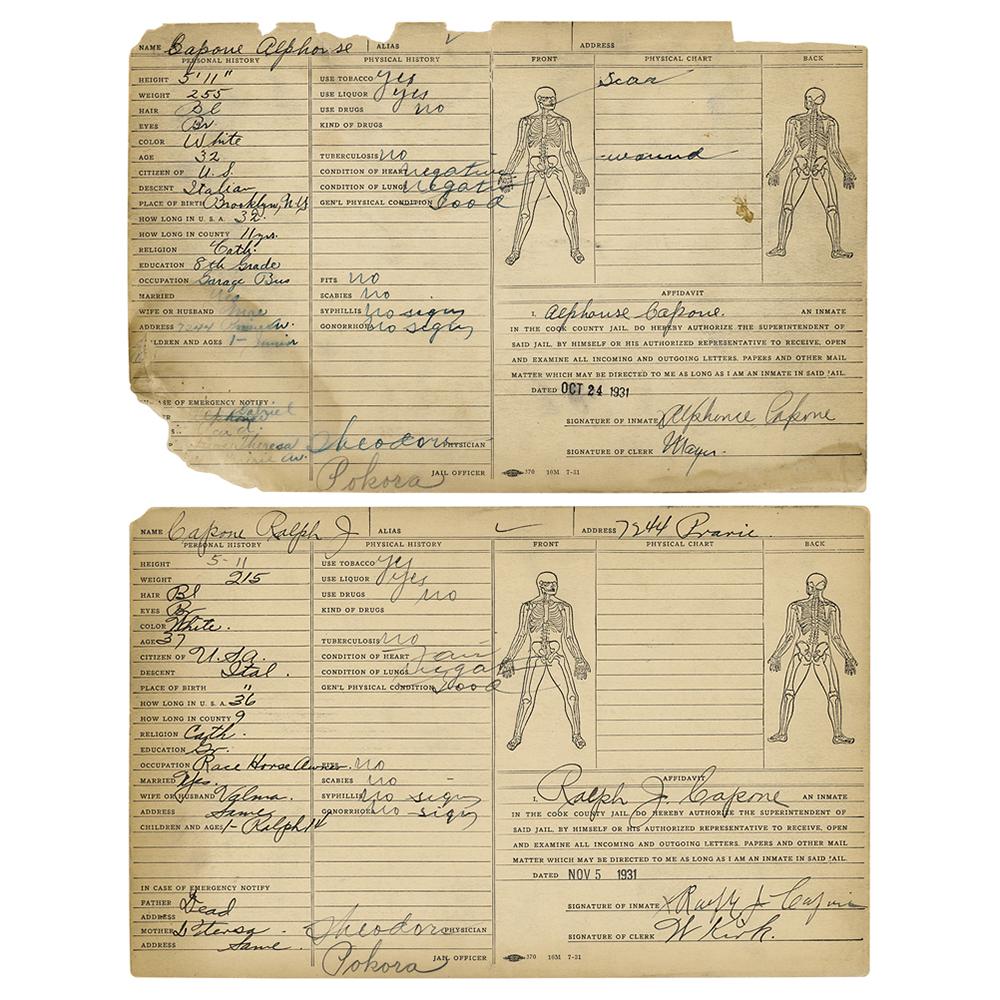 NAME Capone Alphonse ALIAS ✓ ADDRESS
PERSONAL HISTORY PHYSICAL HISTORY FRONT PHYSICAL CHART BACK
HEIGHT 5'11" USE TOBACCO Yes Scar
WEIGHT 255 USE LIQUOR Yes
HAIR Bl USE DRUGS no
EYES Br. KIND OF DRUGS
COLOR White
AGE 32 TUBERCULOSIS no wound
CITIZEN OF U.S. CONDITION OF HEART negative
DESCENT Italian CONDITION OF LUNGS negati
PLACE OF BIRTH Brooklyn, N.Y. GEN'L PHYSICAL CONDITION Good
HOW LONG IN U. S. A. 32.
HOW LONG IN COUNTY 11 yrs.
RELIGION Cath.
EDUCATION 8th Grade
OCCUPATION Garage Bus FITS no
MARRIED Yes SCABIES no AFFIDAVIT
WIFE OR HUSBAND Mae SYPHILLIS no sign I, Alphonse Capone. AN INMATE
ADDRESS 7244 W. GONORRHOEA no sign IN THE COOK COUNTY JAIL. DO HEREBY AUTHORIZE THE SUPERINTENDENT OF
CHILDREN AND AGES 1- Junior SAID JAIL, BY HIMSELF OR HIS AUTHORIZED REPRESENTATIVE TO RECEIVE, OPEN
AND EXAMINE ALL INCOMING AND OUTGOING LETTERS, PAPERS AND OTHER MAIL
MATTER WHICH MAY BE DIRECTED TO ME AS LONG AS I AM AN INMATE IN SAID JAIL.
DATED OCT 24 1931
ASE OF EMERGENCY NOTIFY
Gabriel
SIGNATURE OF INMATE Alphonse Capone
Theresa Theodore PHYSICIAN
SIGNATURE OF CLERK Mayer.
Pokora JAIL OFFICER 370 10M 7-31
NAME Capone Ralph J ALIAS ✓ ADDRESS 7244 Pravie.
PERSONAL HISTORY PHYSICAL HISTORY FRONT PHYSICAL CHART BACK
HEIGHT 5-11 USE TOBACCO Yes
WEIGHT 215 USE LIQUOR Yes
HAIR Bl USE DRUGS no
EYES Br KIND OF DRUGS
COLOR White.
AGE 37 TUBERCULOSIS no
CITIZEN OF U.S.A. CONDITION OF HEART Fair
DESCENT Ital. CONDITION OF LUNGS negat
PLACE OF BIRTH " GEN'L PHYSICAL CONDITION Good
HOW LONG IN U. S. A. 36
HOW LONG IN COUNTY 9
RELIGION Cath.
EDUCATION Gr.
OCCUPATION Race Horse Owner. FITS no
MARRIED Yes. SCABIES no - AFFIDAVIT
WIFE OR HUSBAND Valma. SYPHILLIS no sign I, Ralph J. Capone AN INMATE
ADDRESS Same GONORRHOEA no sign IN THE COOK COUNTY JAIL. DO HEREBY AUTHORIZE THE SUPERINTENDENT OF
CHILDREN AND AGES 1- Ralph 14 SAID JAIL, BY HIMSELF OR HIS AUTHORIZED REPRESENTATIVE TO RECEIVE, OPEN
AND EXAMINE ALL INCOMING AND OUTGOING LETTERS, PAPERS AND OTHER MAIL
MATTER WHICH MAY BE DIRECTED TO ME AS LONG AS I AM AN INMATE IN SAID JAIL.
DATED NOV 5 1931
IN CASE OF EMERGENCY NOTIFY
FATHER Dead
ADDRESS SIGNATURE OF INMATE x Ralph J. Capone
MOTHER Theodore PHYSICIAN
ADDRESS Same. SIGNATURE OF CLERK W Kirk.
Pokora JAIL OFFICER 370 10M 7-31